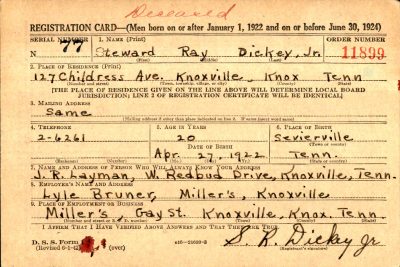 Deceased
REGISTRATION CARD—(Men born on or after January 1, 1922 and on or before June 30, 1924)
SERIAL NUMBER 1. NAME (Print) ORDER NUMBER
N 77 Steward Ray Dickey, Jr. 11899
(First) (Middle) (Last)
2. PLACE OF RESIDENCE (Print)
127 Childress Ave. Knoxville, Knox Tenn
(Number and street) (Town, township, village, or city) (County) (State)
[THE PLACE OF RESIDENCE GIVEN ON THE LINE ABOVE WILL DETERMINE LOCAL BOARD
JURISDICTION; LINE 2 OF REGISTRATION CERTIFICATE WILL BE IDENTICAL]
3. MAILING ADDRESS
Same
[Mailing address if other than place indicated on line 2. If same insert word same]
4. TELEPHONE 5. AGE IN YEARS 6. PLACE OF BIRTH
2-6261 20 Sevierville
DATE OF BIRTH (Town or county)
Apr. 27, 1922 Tenn.
(Exchange) (Number) (Mo.) (Day) (Yr.) (State or country)
7. NAME AND ADDRESS OF PERSON WHO WILL ALWAYS KNOW YOUR ADDRESS
J. R. Layman, W. Redbud Drive, Knoxville, Tenn.
8. EMPLOYER'S NAME AND ADDRESS
Lyle Bruner, Miller's, Knoxville
9. PLACE OF EMPLOYMENT OR BUSINESS
Miller's, Gay St. Knoxville, Knox. Tenn.
(Number and street or R. F. D. number) (Town) (County) (State)
I AFFIRM THAT I HAVE VERIFIED ABOVE ANSWERS AND THAT THEY ARE TRUE.
D. S. S. Form
(Revised 6-1-42) (over) S. R. Dickey Jr
(Registrant's signature)